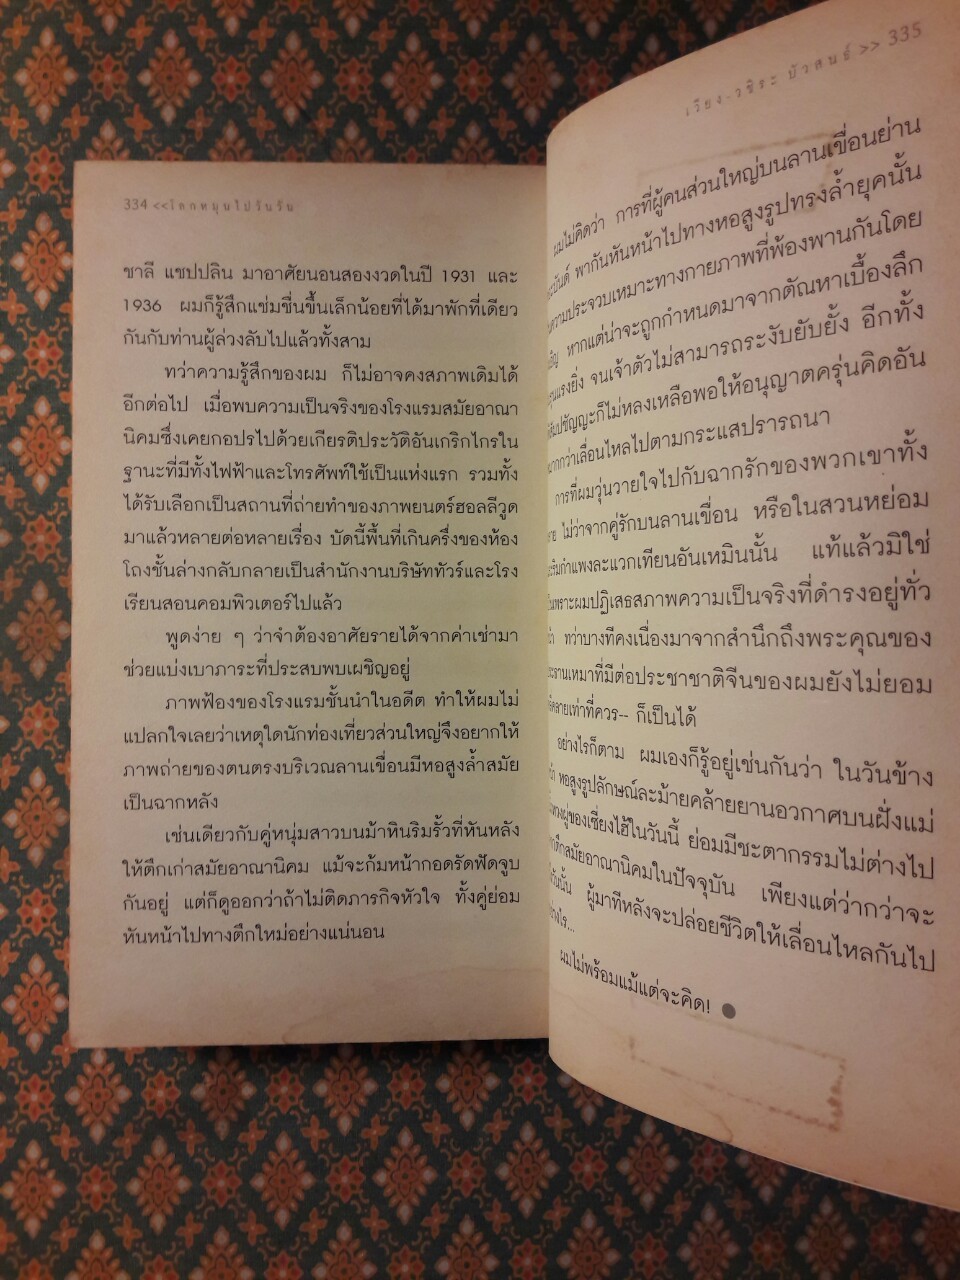 334 <<โลกหมุนไปวันวัน
ชาลี แชปปลิน มาอาศัยนอนสองงวดในปี 1931 และ
1936 ผมก็รู้สึกแช่มชื่นขึ้นเล็กน้อยที่ได้มาพักที่เดียว
กันกับท่านผู้ล่วงลับไปแล้วทั้งสาม
ทว่าความรู้สึกของผม ก็ไม่อาจคงสภาพเดิมได้
อีกต่อไป เมื่อพบความเป็นจริงของโรงแรมสมัยอาณา
นิคมซึ่งเคยกอปรไปด้วยเกียรติประวัติอันเกริกไกรใน
ฐานะที่มีทั้งไฟฟ้าและโทรศัพท์ใช้เป็นแห่งแรก รวมทั้ง
ได้รับเลือกเป็นสถานที่ถ่ายทำของภาพยนตร์ฮอลลีวูด
มาแล้วหลายต่อหลายเรื่อง บัดนี้พื้นที่เกินครึ่งของห้อง
โถงชั้นล่างกลับกลายเป็นสำนักงานบริษัททัวร์และโรง
เรียนสอนคอมพิวเตอร์ไปแล้ว
พูดง่าย ๆ ว่าจำต้องอาศัยรายได้จากค่าเช่ามา
ช่วยแบ่งเบาภาระที่ประสบพบเผชิญอยู่
ภาพฟ้องของโรงแรมชั้นนำในอดีต ทำให้ผมไม่
แปลกใจเลยว่าเหตุใดนักท่องเที่ยวส่วนใหญ่จึงอยากให้
ภาพถ่ายของตนตรงบริเวณลานเขื่อนมีหอสูงล้ำสมัย
เป็นฉากหลัง
เช่นเดียวกับคู่หนุ่มสาวบนม้าหินริมรั้วที่หันหลัง
ให้ตึกเก่าสมัยอาณานิคม แม้จะก้มหน้ากอดรัดฟัดจูบ
กันอยู่ แต่ก็ดูออกว่าถ้าไม่ติดภารกิจหัวใจ ทั้งคู่ย่อม
หันหน้าไปทางตึกใหม่อย่างแน่นอน
เวียง-วชิระ บัวสนธ์ >> 335
ผมไม่คิดว่า การที่ผู้คนส่วนใหญ่บนลานเขื่อนย่าน
พากันหันหน้าไปทางหอสูงรูปทรงล้ำยุคนั้น
ความประจวบเหมาะทางกายภาพที่พ้องพานกันโดย
หากแต่น่าจะถูกกำหนดมาจากตัณหาเบื้องลึก
จนเจ้าตัวไม่สามารถระงับยับยั้ง อีกทั้ง
ก็ไม่หลงเหลือพอให้อนุญาตครุ่นคิดอัน
มากกว่าเลื่อนไหลไปตามกระแสปรารถนา
การที่ผมวุ่นวายใจไปกับฉากรักของพวกเขาทั้ง
ไม่ว่าจากคู่รักบนลานเขื่อน หรือในสวนหย่อม
ริมกำแพงละแวกเทียนอันเหมินนั้น แท้แล้วมิใช่
เพราะผมปฏิเสธสภาพความเป็นจริงที่ดำรงอยู่ทั่ว
ทว่าบางทีคงเนื่องมาจากสำนึกถึงพระคุณของ
ประธานเหมาที่มีต่อประชาชาติจีนของผมยังไม่ยอม
คลายเท่าที่ควร-- ก็เป็นได้
อย่างไรก็ตาม ผมเองก็รู้อยู่เช่นกันว่า ในวันข้าง
หอสูงรูปลักษณ์ละม้ายคล้ายยานอวกาศบนฝั่งแม่
ของเซี่ยงไฮ้ในวันนี้ ย่อมมีชะตากรรมไม่ต่างไป
ตึกสมัยอาณานิคมในปัจจุบัน เพียงแต่ว่ากว่าจะ
วันนั้น ผู้มาทีหลังจะปล่อยชีวิตให้เลื่อนไหลกันไป
อย่างไร...
ผมไม่พร้อมแม้แต่จะคิด! ●